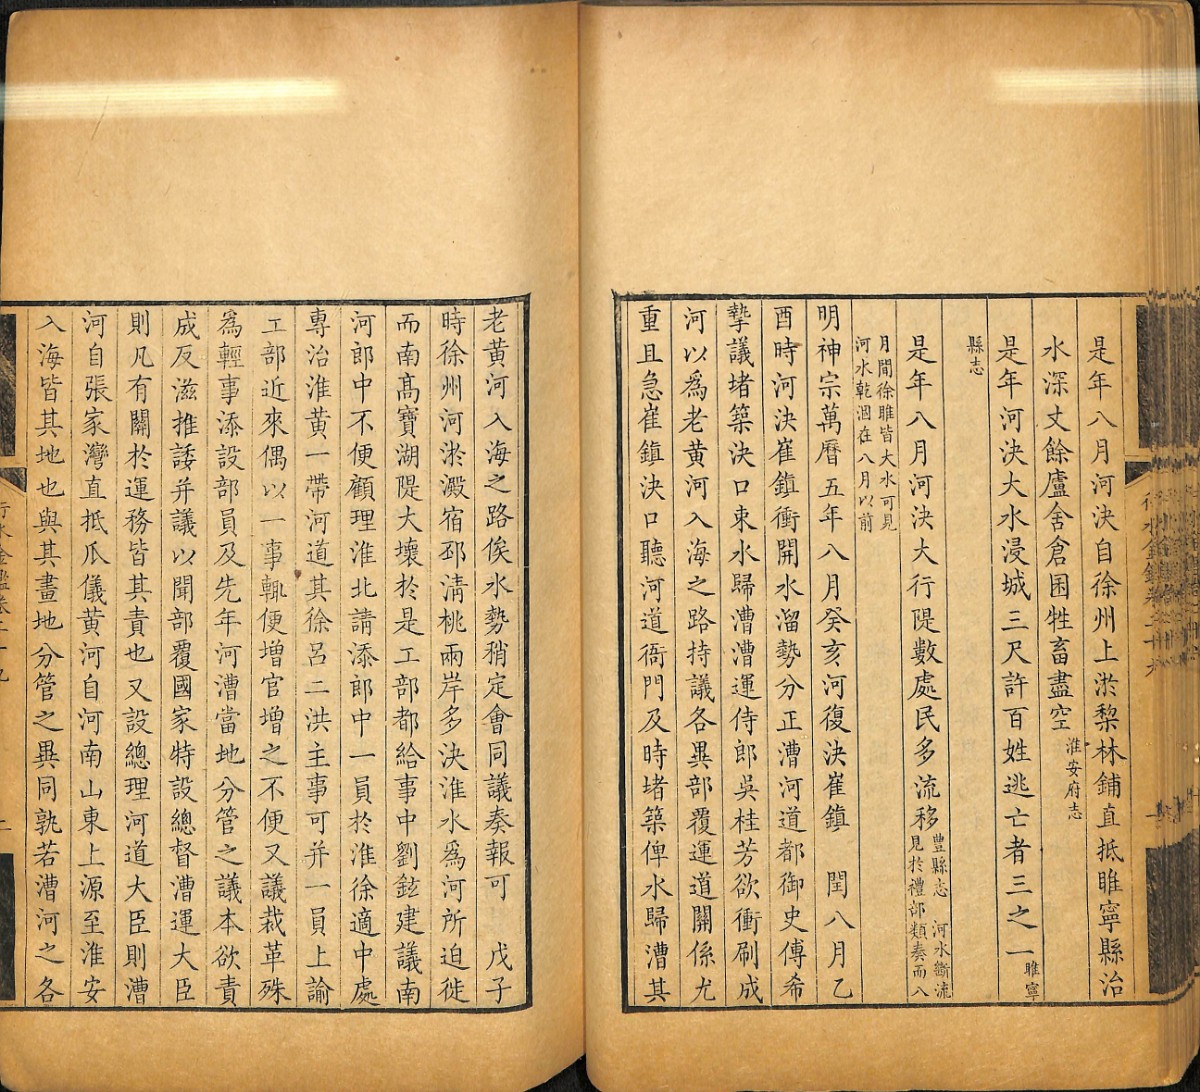 是年八月河決自徐州上淤棃林鋪直抵睢寧縣治
水深丈餘廬舍倉囷牲畜盡空淮安府志
是年河決大水浸城三尺許百姓逃亡者三之一睢寧
縣志
是年八月河決大行隄數處民多流移豐縣志　河水斷流見於禮部類奏而八
月間徐睢皆大水可見河水乾涸在八月以前
明神宗萬曆五年八月癸亥河復決崔鎮　閏八月乙
酉時河決崔鎮衝開水溜勢分正漕河道都御史傅希
摯議堵築決口束水歸漕漕運侍郎吳桂芳欲衝刷成
河以爲老黃河入海之路持議各異部覆運道關係尤
重且急崔鎮決口聽河道衙門及時堵築俾水歸漕其
老黃河入海之路俟水勢稍定會同議奏報可　戊子
時徐州河淤澱宿邳淸桃兩岸多決淮水爲河所迫徙
而南高寶湖隄大壞於是工部都給事中劉鉉建議南
河郎中不便顧理淮北請添郎中一員於淮徐適中處
專治淮黃一帶河道其徐呂二洪主事可并一員上諭
工部近來偶以一事輒便增官增之不便又議裁革殊
爲輕事添設部員及先年河漕當地分管之議本欲責
成反滋推諉并議以聞部覆國家特設總督漕運大臣
則凡有關於運務皆其責也又設總理河道大臣則漕
河自張家灣直抵瓜儀黃河自河南山東上源至淮安
入海皆其地也與其畫地分管之異同孰若漕河之各